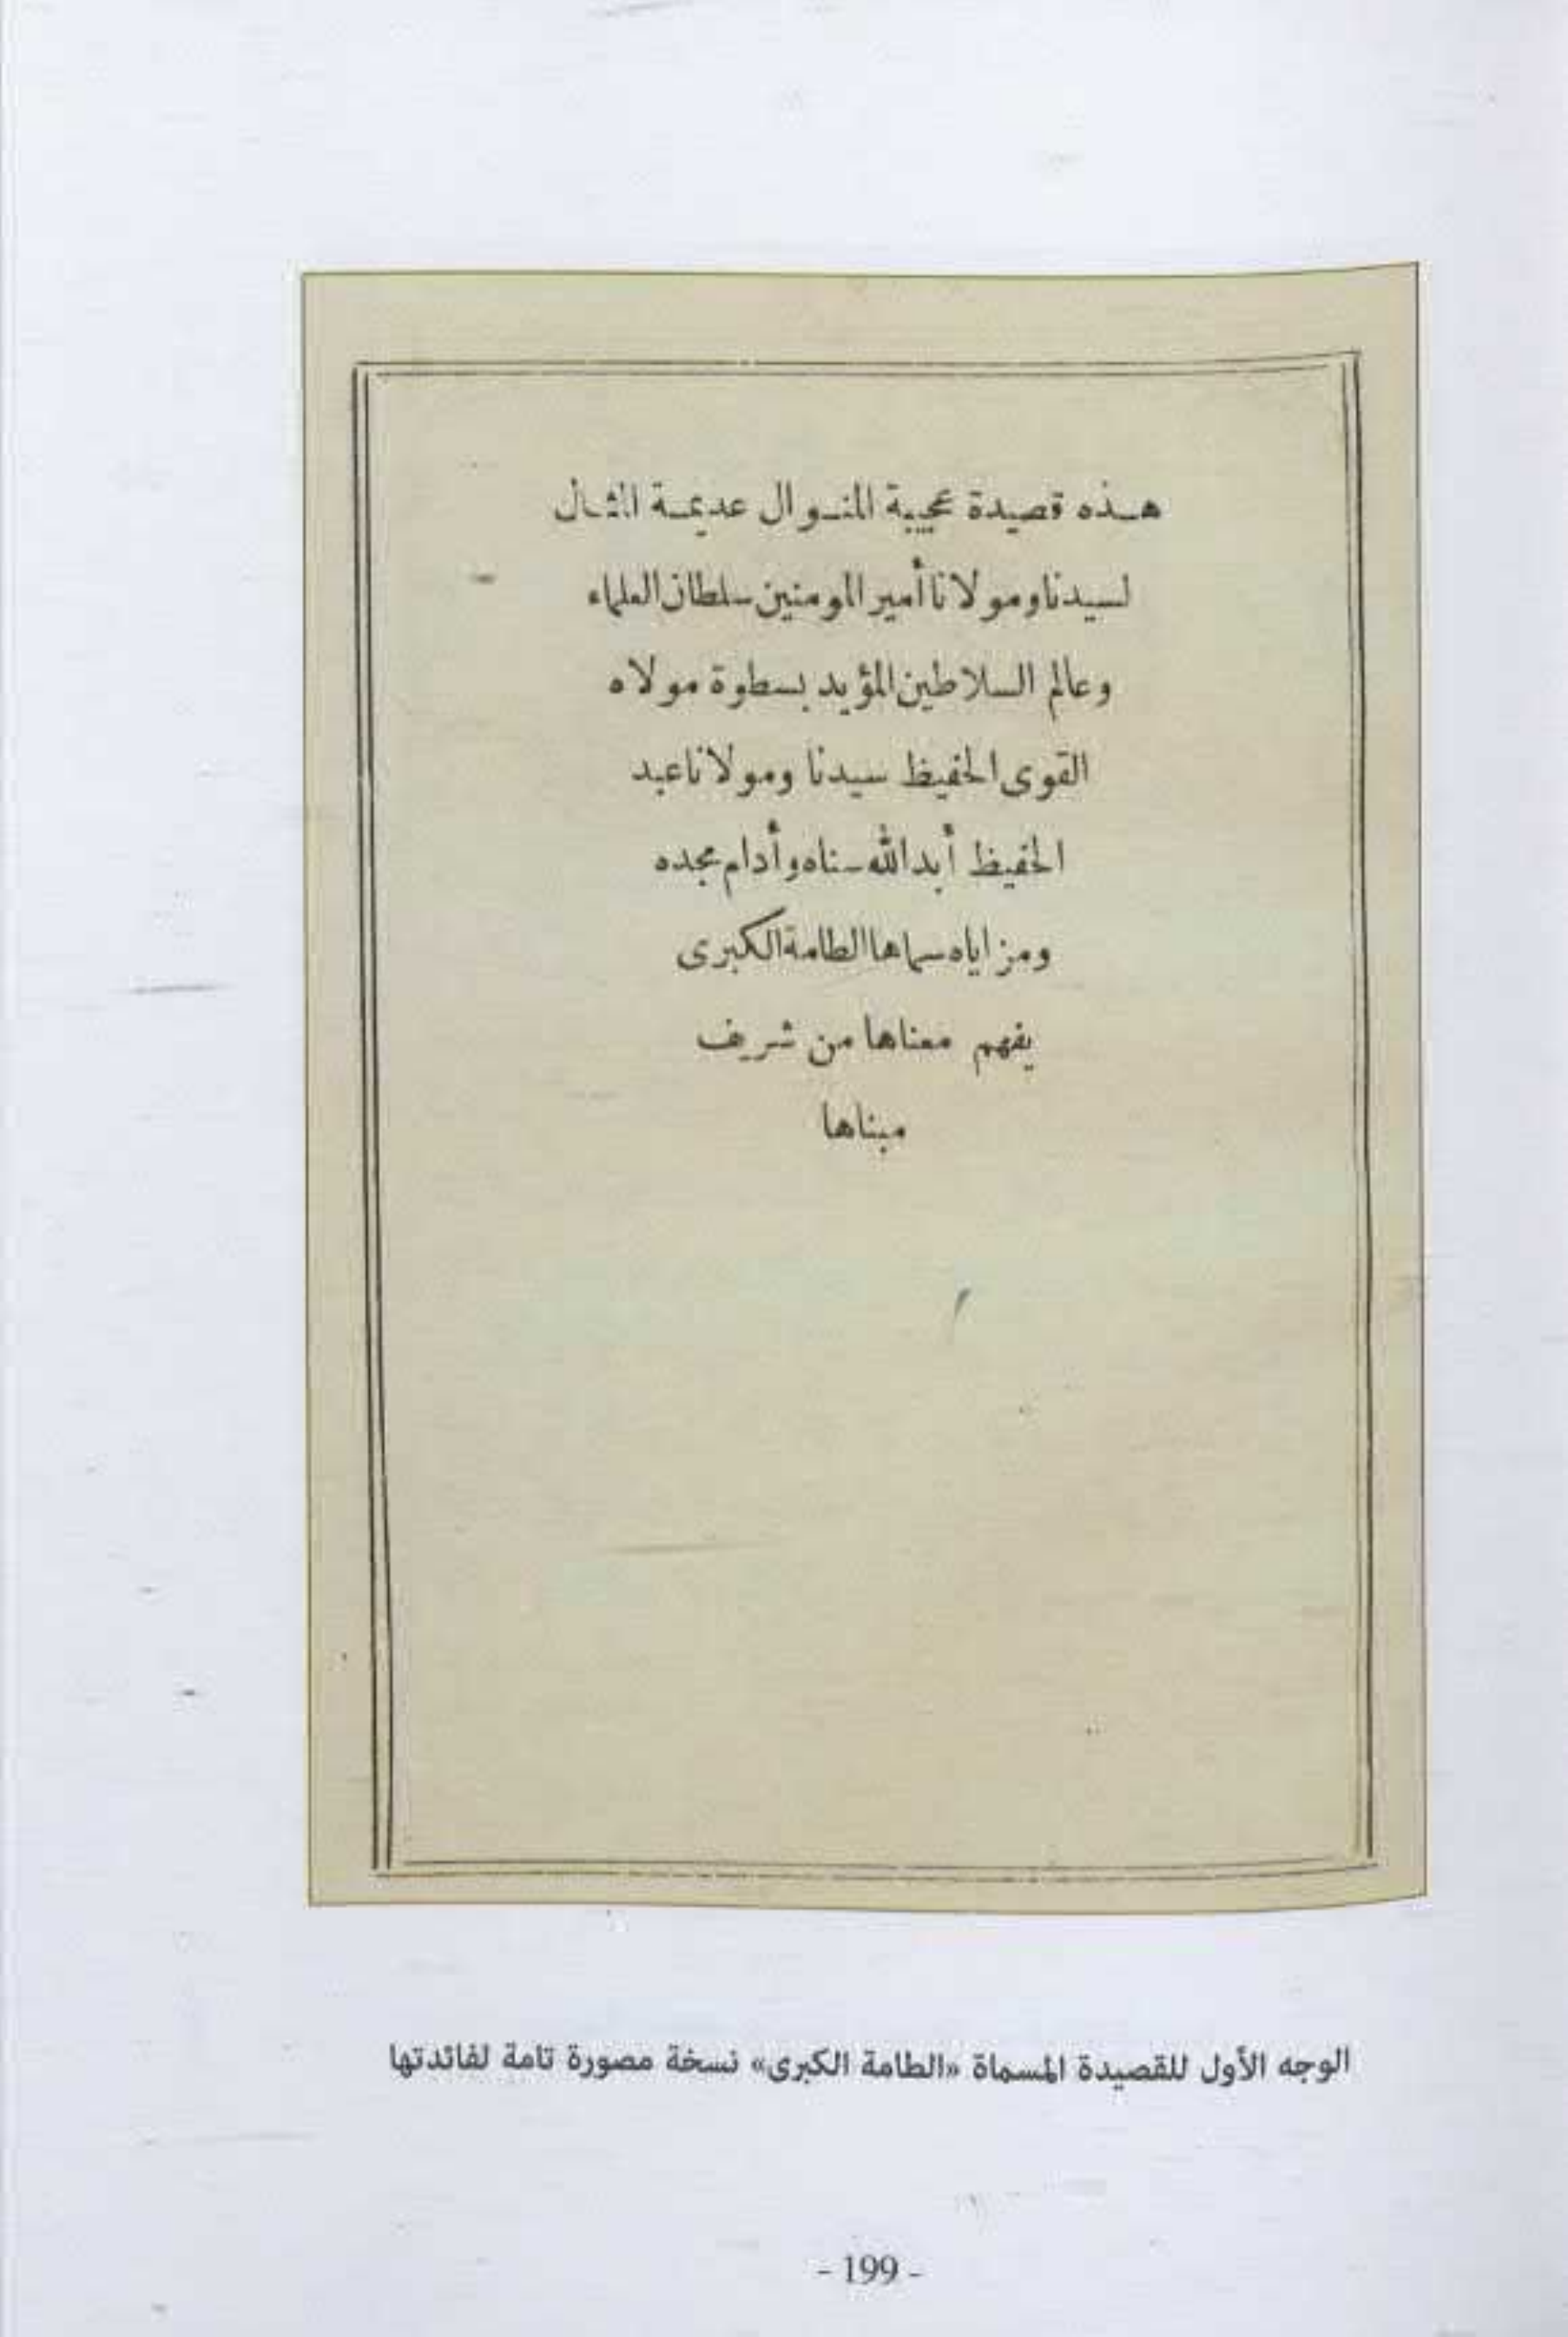 هذه قصيدة عجيبة المنوال عديمة المثال
لسيدنا ومولانا أمير المومنين سلطان العلماء
وعالم السلاطين المؤيد بسطوة مولاه
القوى الحفيظ سيدنا ومولانا عبد
الحفيظ أبد الله سناه وأدام مجده
ومزاياه سماها الطامة الكبرى
يفهم معناها من شريف
مبناها
الوجه الأول للقصيدة المسماة «الطامة الكبرى» نسخة مصورة تامة لفائدتها
- 199 -